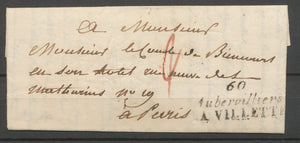 A Monsieur
Monsieur le Comte de Biencourt
en son hotel en rue neuve des
mathurins no 19
à Paris
60
Aubervilliers
LA VILLETTE